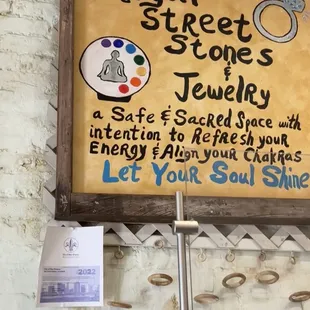 Street
Stones
&
Jewelry
a Safe & Sacred Space with
intention to Refresh your
Energy & Align your Chakras
Let Your Soul Shine
2022